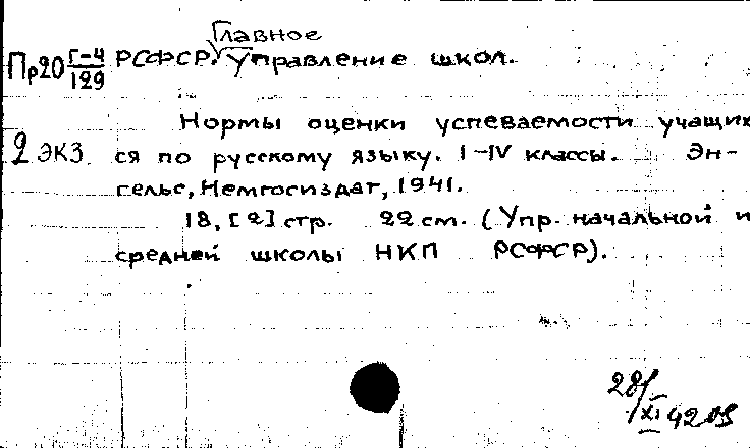 Главное
Пр20 Г-4/129 РСФСР. Управление школ.
Нормы оценки успеваемости учащих
2 экз. ся по русскому языку. I-IV классы. Эн-
гельс, Немгосиздат, 1941.
18, [2] стр. 22 см. (Упр. начальной и
средней школы НКП РСФСР).
28/XI 42